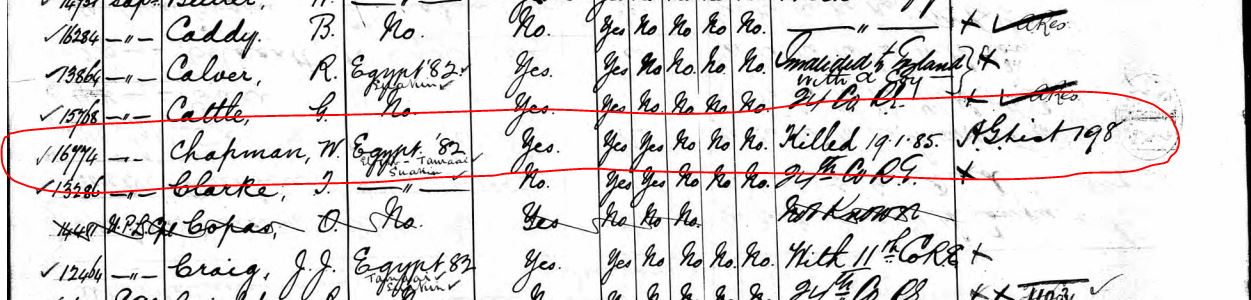 ✓16284 –〃– Caddy. B. No. No. Yes No No. No. No. –〃– +
✓13864 –〃– Calver, R. Egypt '82 Suakin ✓ Yes. Yes No No. No. No. Invalided to England +
✓15768 –〃– Cattle, G. No Yes. Yes No No. No. No. 24 Co R.E. +
✓16774 –〃– Chapman, W. Egypt '82 Tamaai Suakin ✓ Yes. Yes Yes No No. No. Killed 19.1.85. AG List 198
✓13286 –〃– Clarke, T. –〃– No. Yes Yes No No. No. 24th Co R.E. +
Copas, O. No. Yes No No No. Not Known
✓12464 –〃– Craig, J. J. Egypt, 82 Tamaai Suakin ✓ Yes. Yes No No. No. No. With 11th Co R.E. +